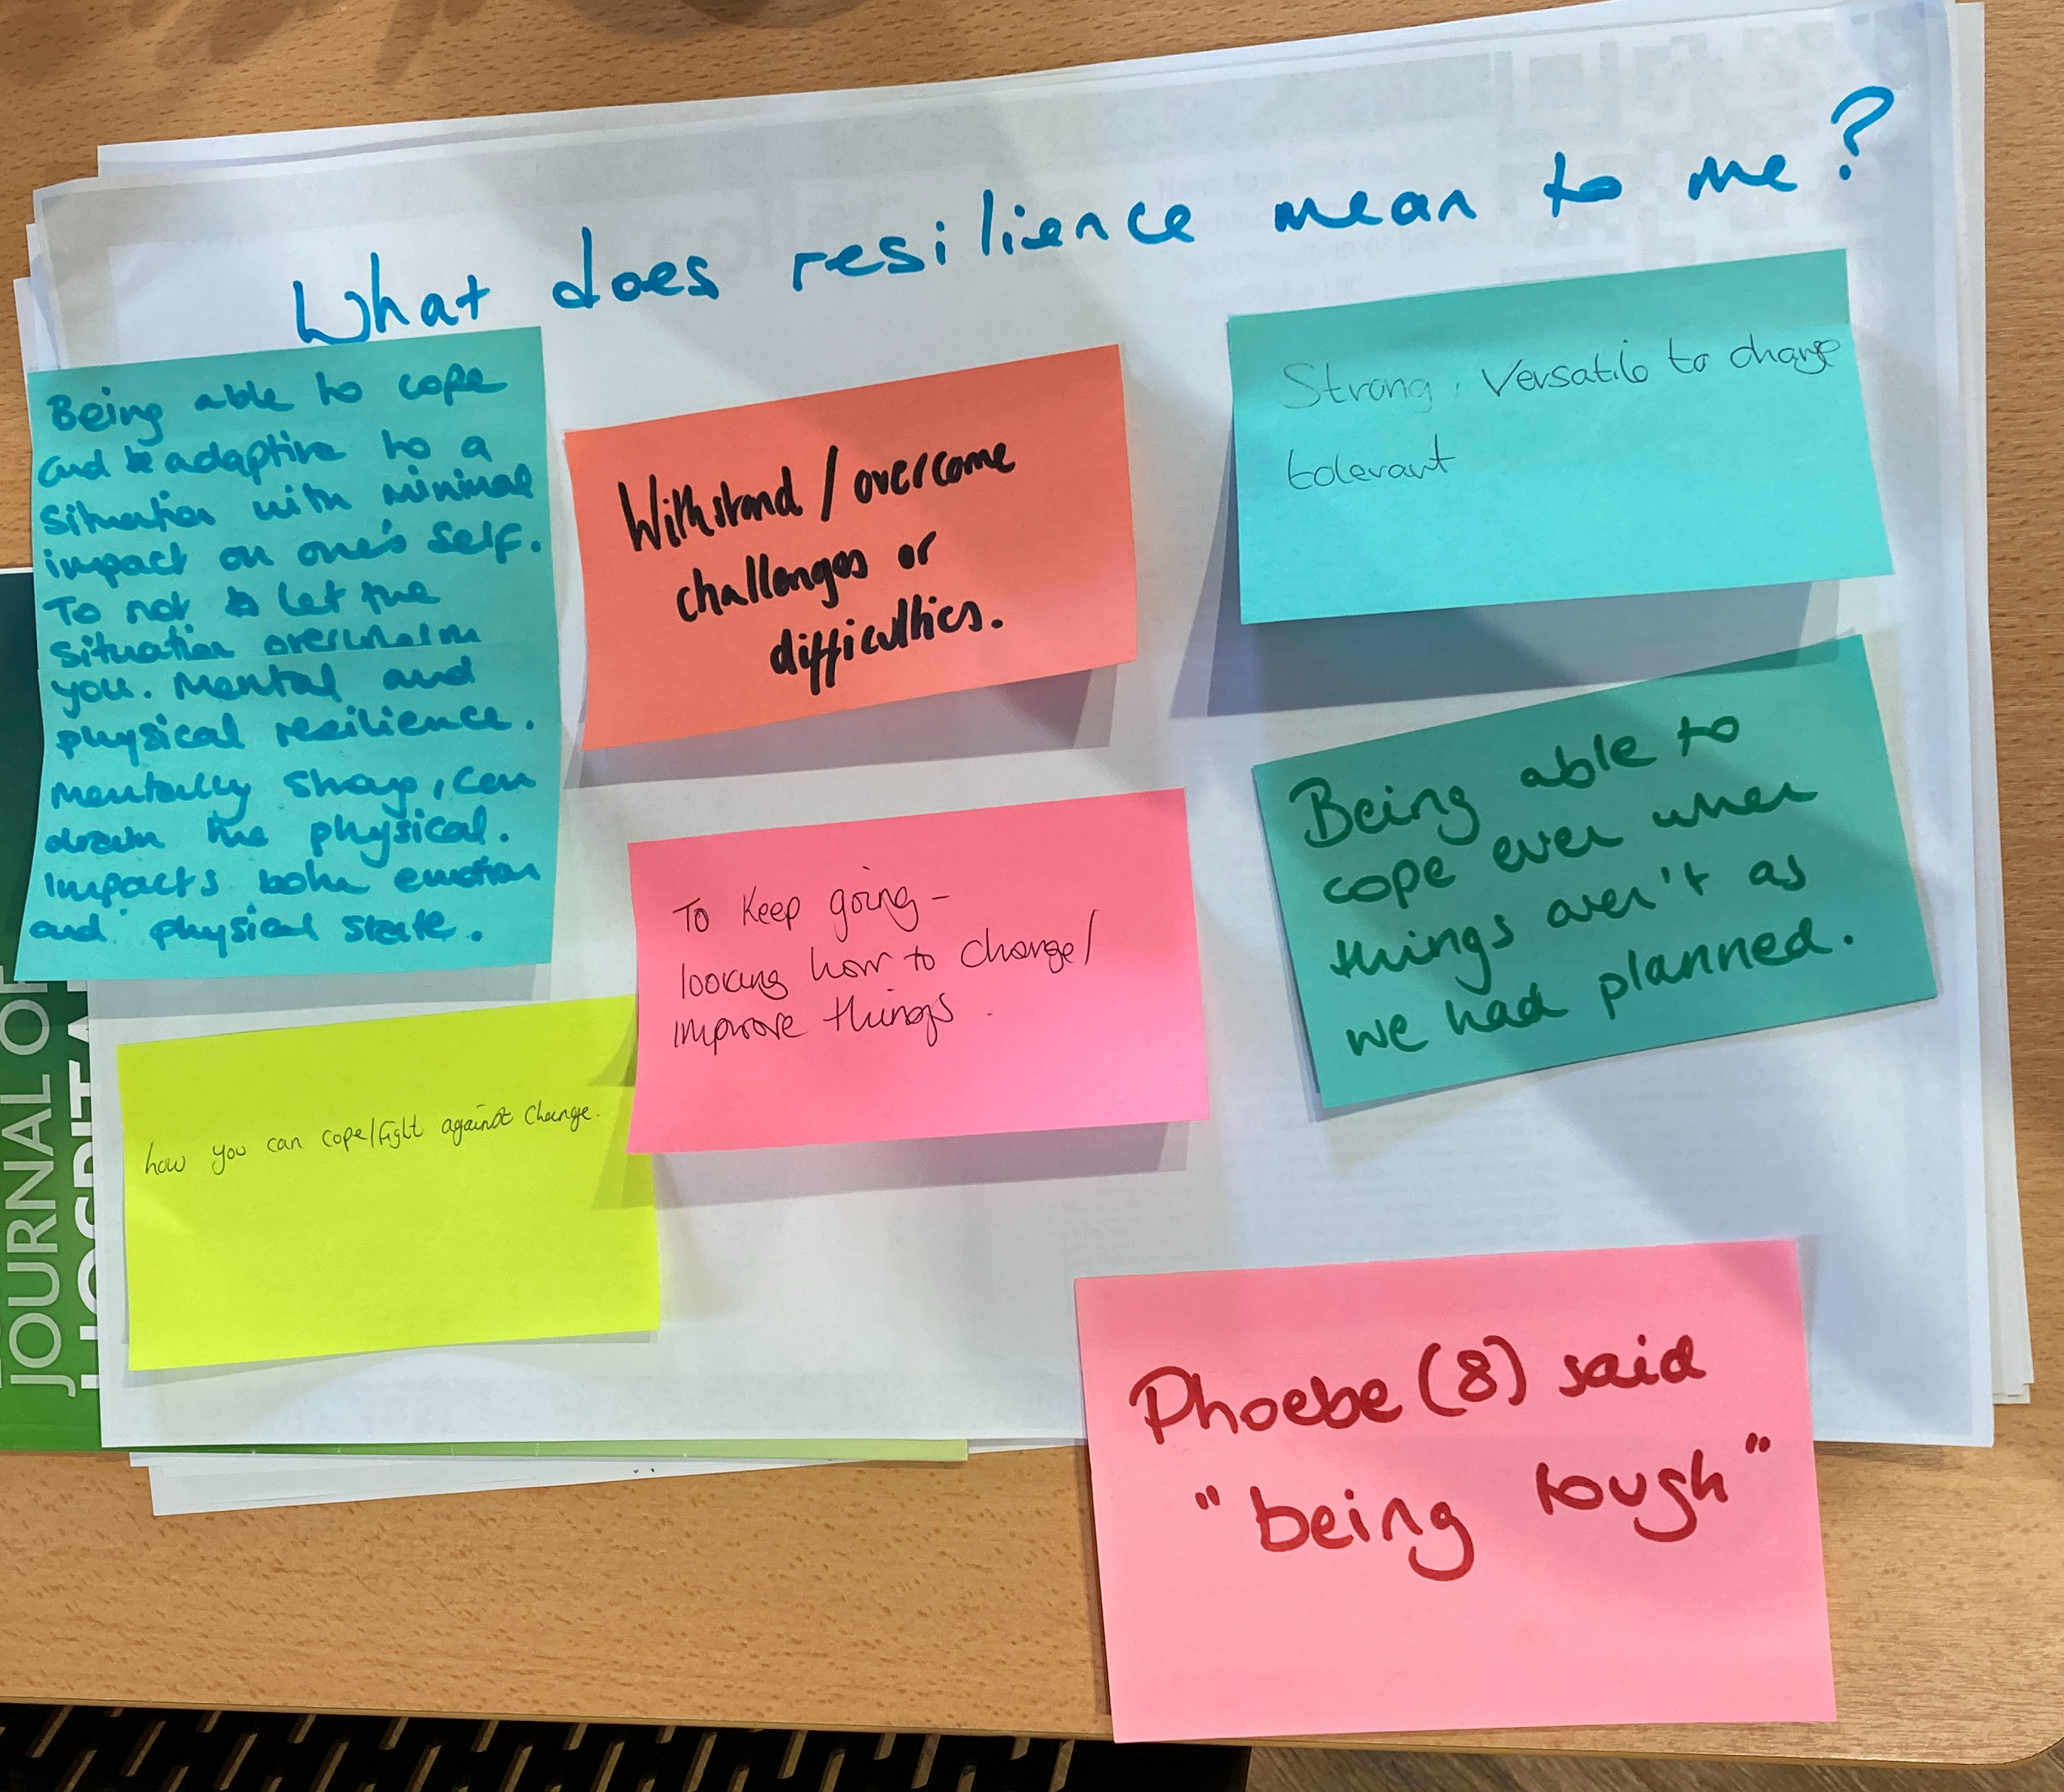 What does resilience mean to me?
Being able to cope
and be adaptive to a
situation with minimal
impact on one's self.
To not to let the
situation overwhelm
you. Mental and
physical resilience.
Mentally sharp, can
drain the physical.
Impacts both emotion
and physical state.
Withstand / overcome
challenges or
difficulties.
Strong, Versatile to change
tolerant
To keep going -
looking how to change/
improve things.
Being able to
cope even when
things aren't as
we had planned.
how you can cope/fight against change.
Phoebe (8) said
"being tough"
JOURNAL OF